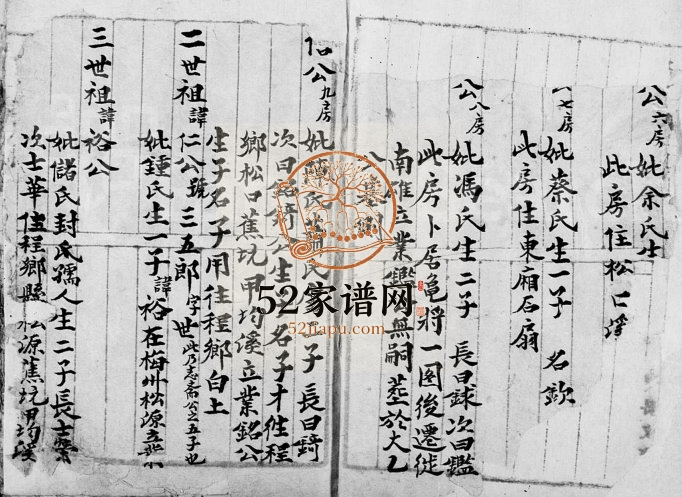 公六房妣余氏生
此房住松口溪
八七房妣蔡氏生一子 名欽
此房住東廂后扇
公八房妣馮氏生二子 長曰銶次曰鑑
此房卜居龟將一图後遷徙
南雄立業鑑公無嗣塟於大乙
仁公九房
妣 氏 氏生 子 長曰錡
次曰銘錡公生 名子才住程
鄉松口蕉坑甲均溪立業銘公
生子名子用往程鄉白土
二世祖諱仁公號三五郎字世此乃志斋公之五子也
妣鍾氏生一子諱裕在梅州松源立業
三世祖諱裕公
妣儲氏封氏孺人生二子長士榮
次士華住程鄉縣松源蕉坑甲均溪
52家谱网
52jiapu.com